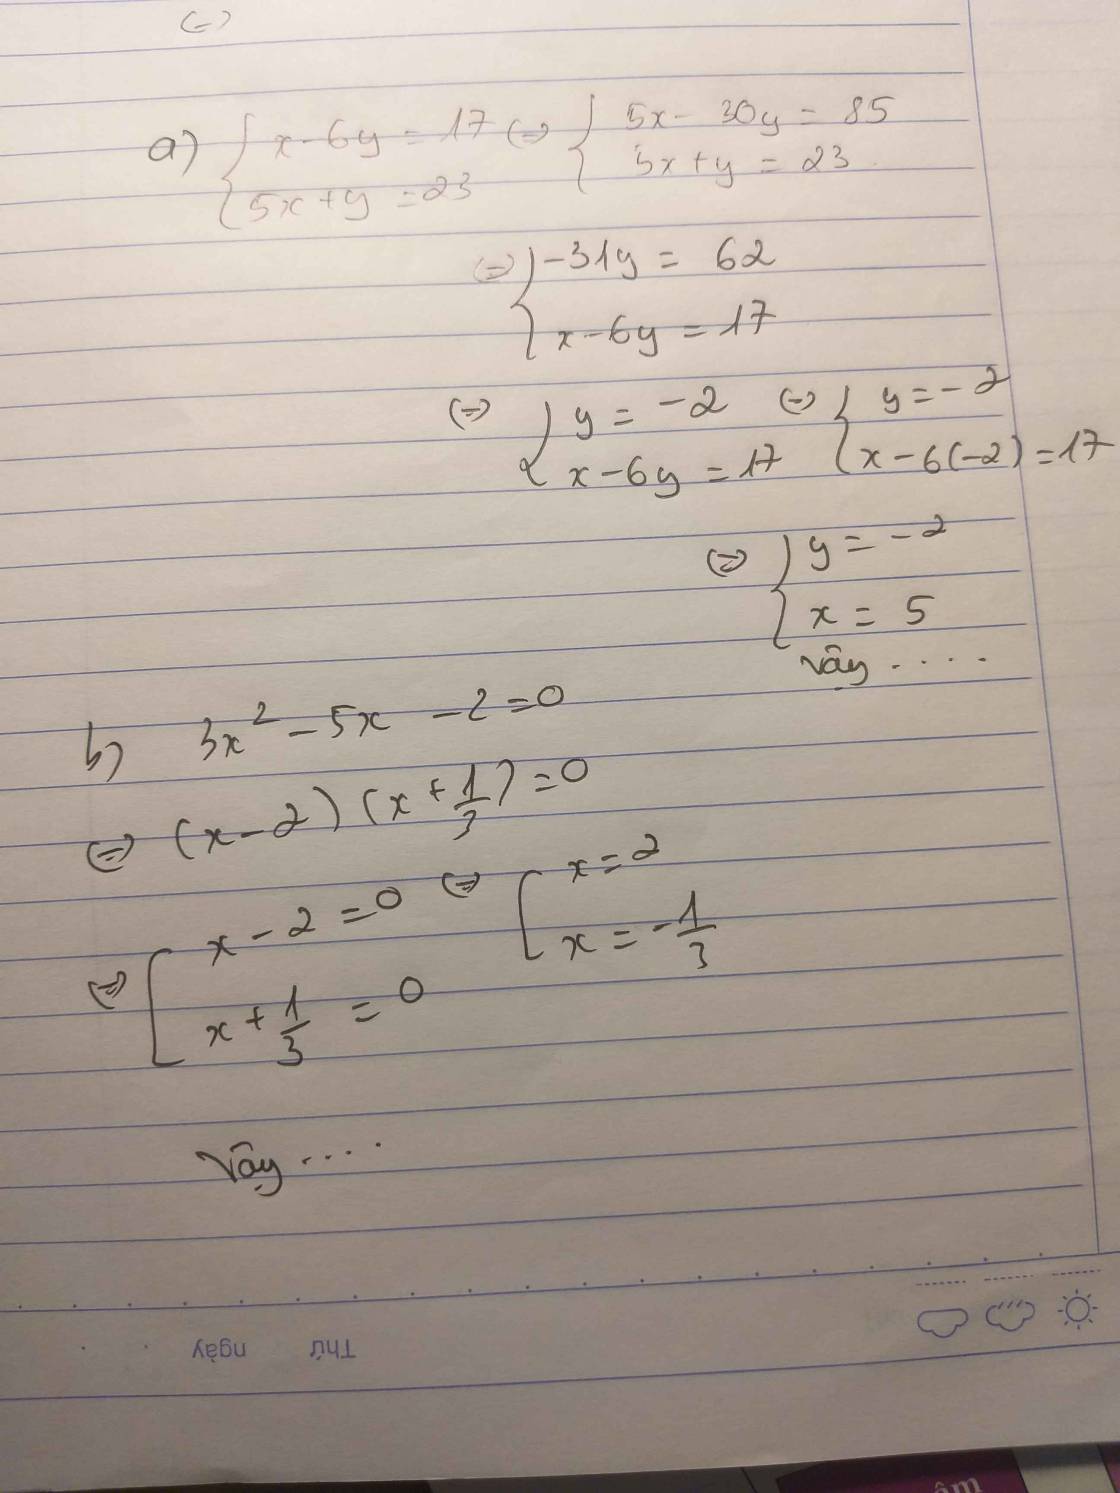 (=)
a) { x - 6y = 17 (=) { 5x - 30y = 85
5x + y = 23 5x + y = 23
(=) { -31y = 62
x - 6y = 17
(=) { y = -2 (=) { y = -2
x - 6y = 17 x - 6(-2) = 17
(=) { y = -2
x = 5
Vậy ....
b) 3x² - 5x - 2 = 0
(=) (x - 2) (x + 1/3) = 0
(=) [ x - 2 = 0 (=) [ x = 2
x + 1/3 = 0 x = -1/3
Vậy ....
Thứ ngày
âm